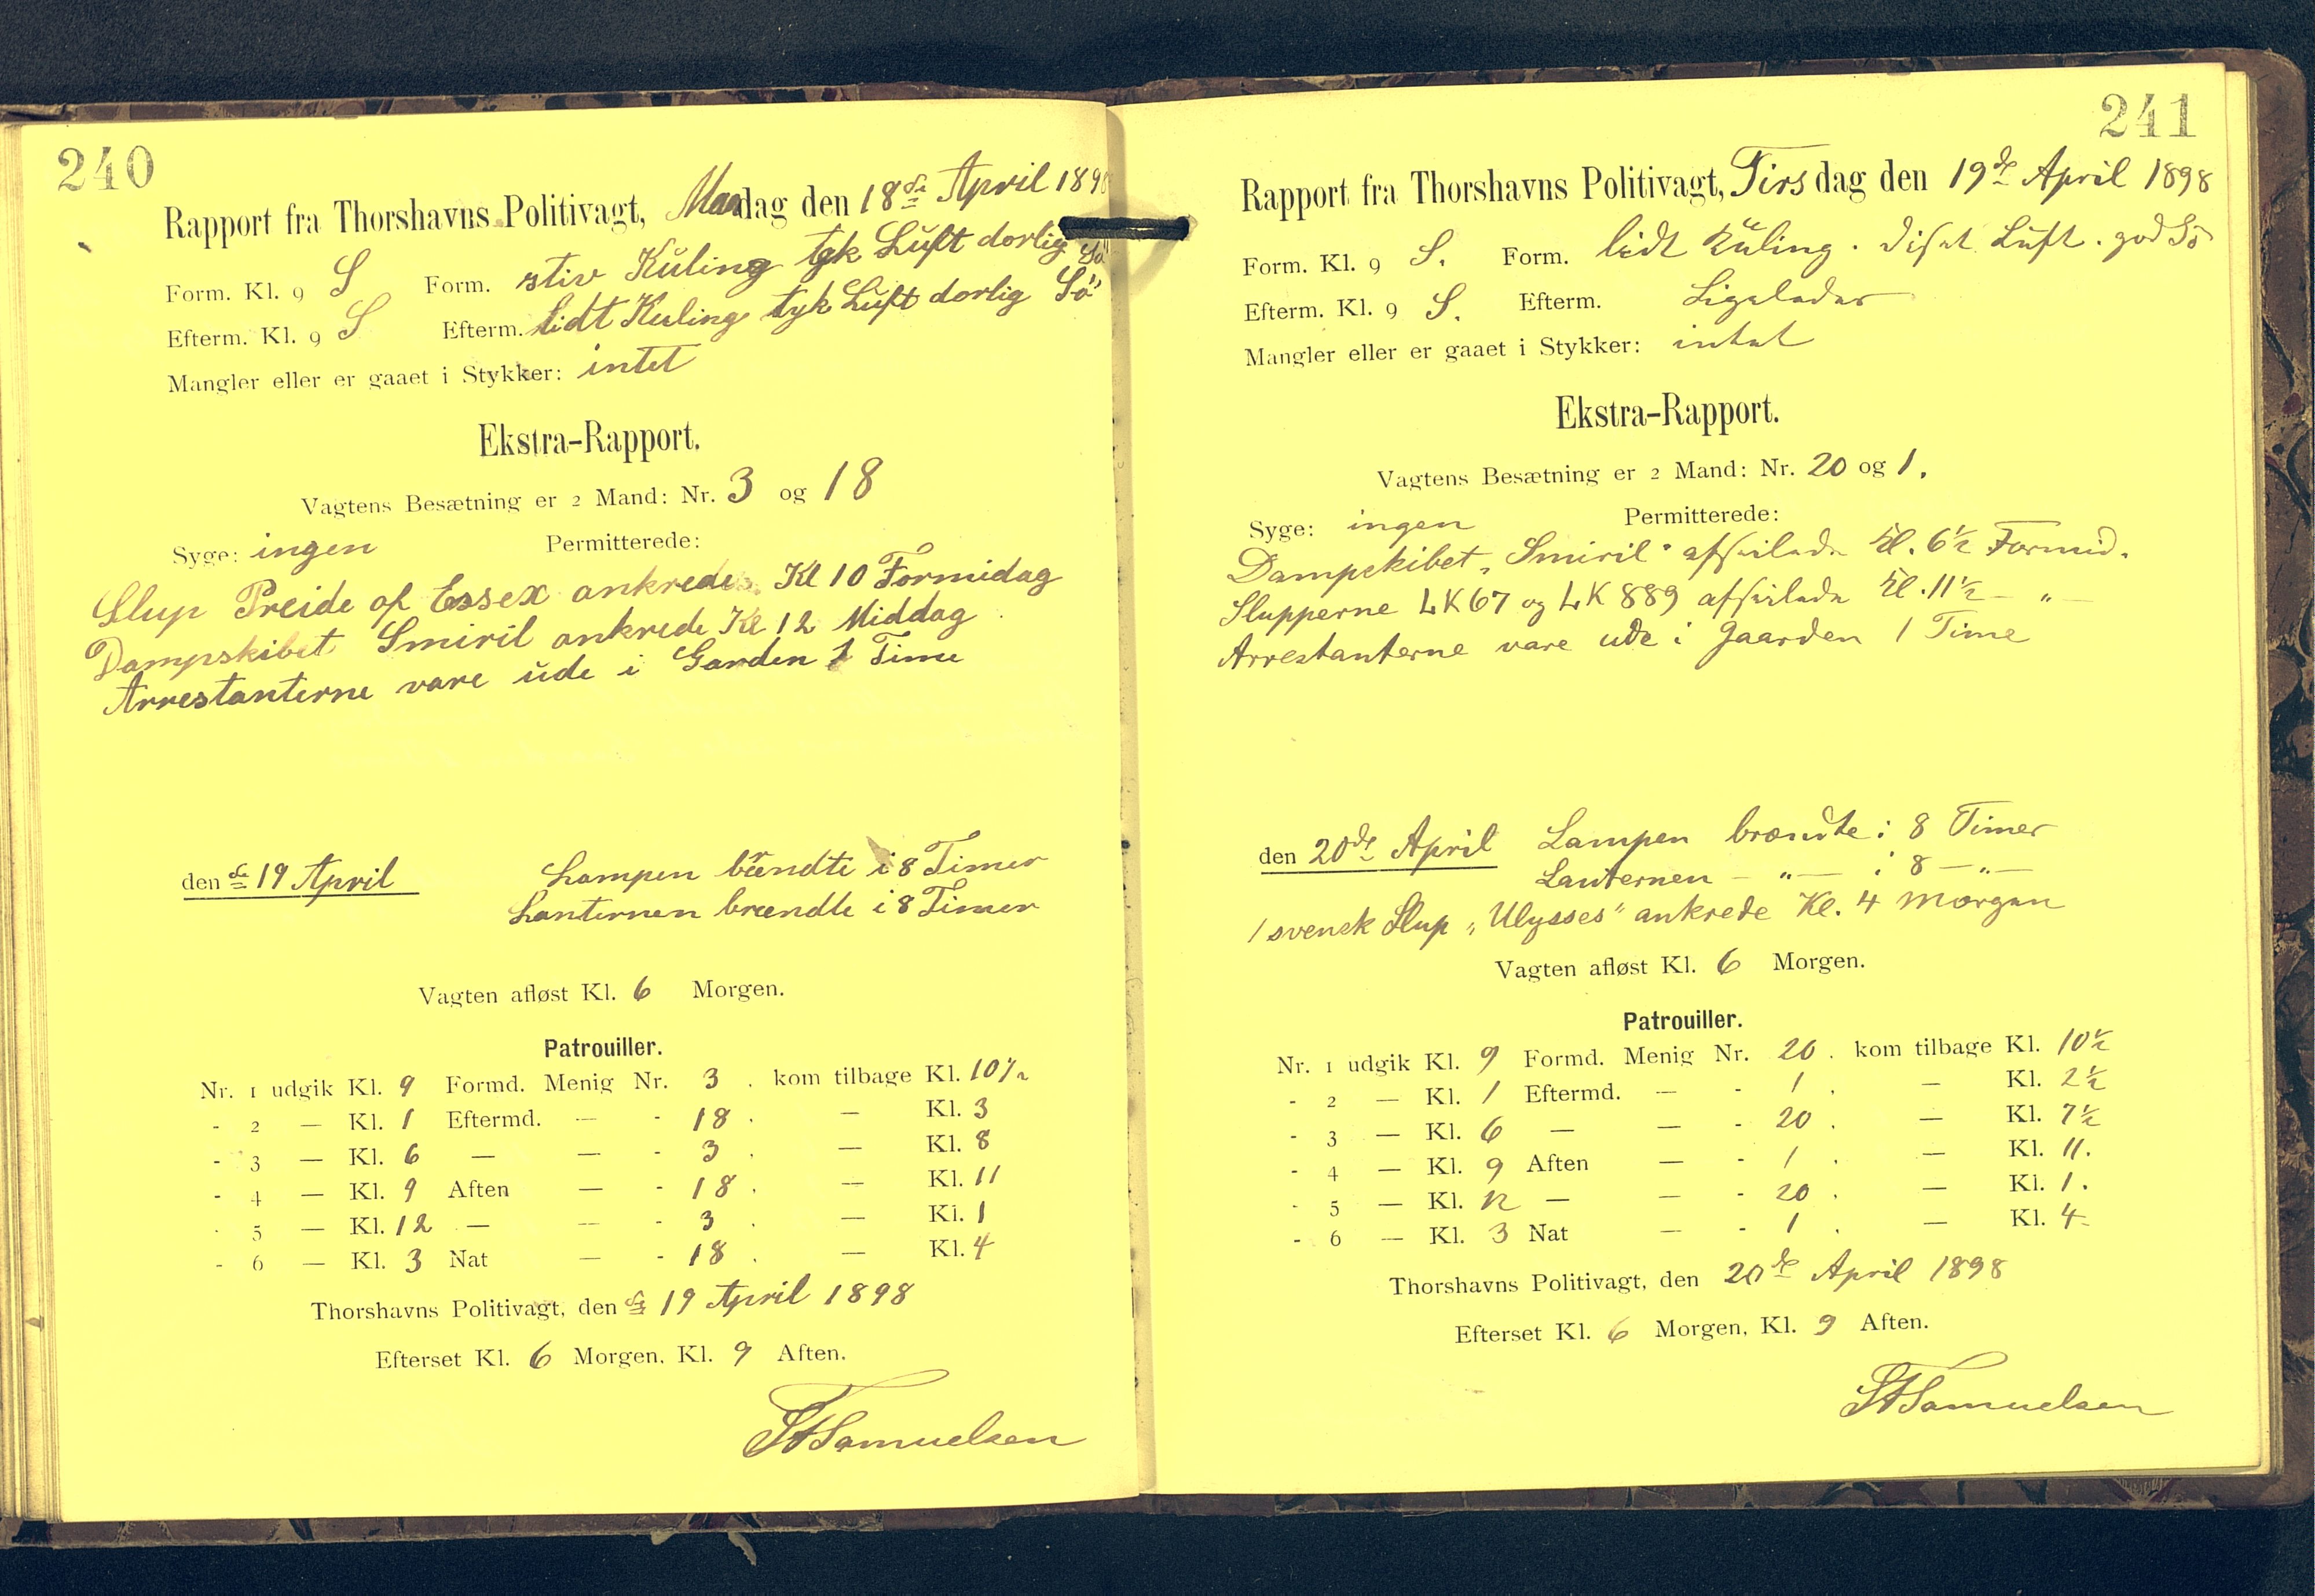 240
Rapport fra Thorshavns Politivagt, Mandag den 18de April 1898
Form. Kl. 9 S Form. stiv Kuling tyk Luft dorlig Sö
Efterm. Kl. 9 S Efterm. lidt Kuling tyk Luft dorlig Sö
Mangler eller er gaaet i Stykker: intet
Ekstra-Rapport.
Vagtens Besætning er 2 Mand: Nr. 3 og 18
Syge: ingen Permitterede:
Slup Preide of Essex ankrede Kl 10 Formidag
Dampskibet Smiril ankrede Kl 12 Middag
Arrestanterne vare ude i Gaarden 1 Time
den de 19 April Lampen brændte i 8 Timer
Lanternen brændte i 8 Timer
Vagten afløst Kl. 6 Morgen.
Patrouiller.
Nr. 1 udgik Kl. 9 Formd. Menig Nr. 3 . kom tilbage Kl. 10½
- 2 — Kl. 1 Eftermd. — - 18 . — Kl. 3
- 3 — Kl. 6 — — - 3 . — Kl. 8
- 4 — Kl. 9 Aften — - 18 . — Kl. 11
- 5 — Kl. 12 — — - 3 . — Kl. 1
- 6 — Kl. 3 Nat — - 18 . — Kl. 4
Thorshavns Politivagt, den de 19 April 1898
Efterset Kl. 6 Morgen, Kl. 9 Aften.
Samuelsen
241
Rapport fra Thorshavns Politivagt, Tirsdag den 19de April 1898
Form. Kl. 9 S. Form. lidt Kuling. diset Luft. god Sö
Efterm. Kl. 9 S. Efterm. Ligeledes
Mangler eller er gaaet i Stykker: intet
Ekstra-Rapport.
Vagtens Besætning er 2 Mand: Nr. 20 og 1.
Syge: ingen Permitterede:
Dampskibet „Smiril" afseilede Kl. 6½ Formid.
Slupperne LK 67 og LK 889 afseilede Kl. 11½ — „ —
Arrestanterne vare ude i Gaarden 1 Time
den 20de April Lampen brændte i 8 Timer
Lanternen — „ — i 8 — „ —
1 svensk Slup „Ulysses" ankrede Kl. 4 Morgen
Vagten afløst Kl. 6 Morgen.
Patrouiller.
Nr. 1 udgik Kl. 9 Formd. Menig Nr. 20 . kom tilbage Kl. 10½
- 2 — Kl. 1 Eftermd. — - 1 . — Kl. 2½
- 3 — Kl. 6 — — - 20 . — Kl. 7½
- 4 — Kl. 9 Aften — - 1 . — Kl. 11.
- 5 — Kl. 12 — — - 20 . — Kl. 1.
- 6 — Kl. 3 Nat — - 1 . — Kl. 4
Thorshavns Politivagt, den 20de April 1898
Efterset Kl. 6 Morgen, Kl. 9 Aften.
Samuelsen